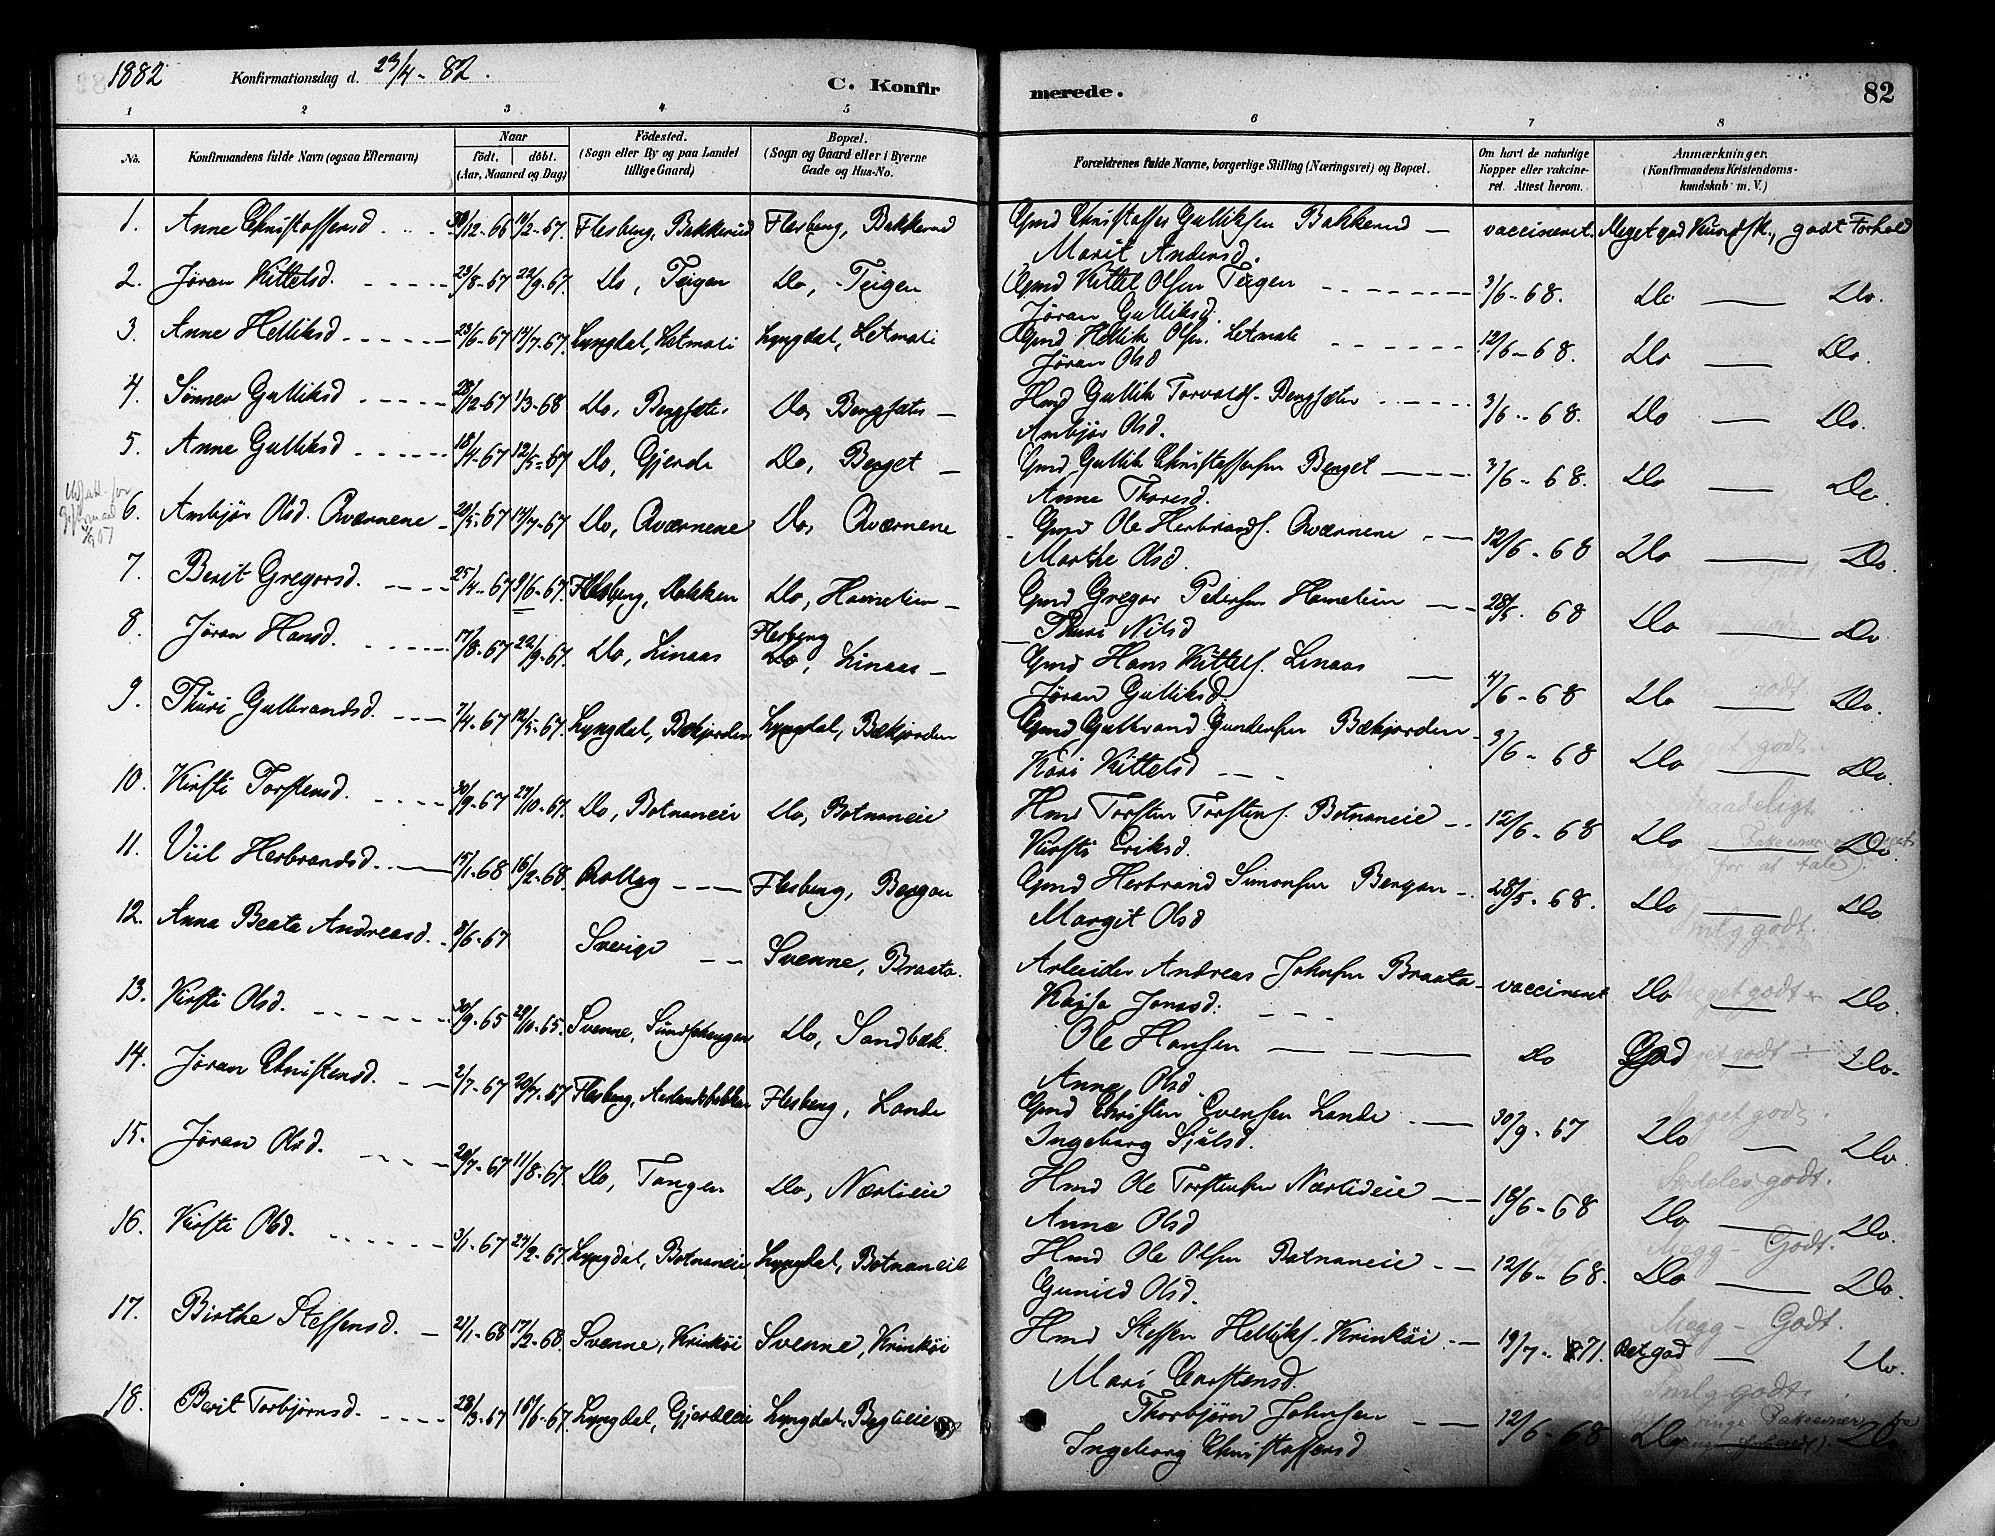 1882 Konfirmationsdag d. 23/4 - 82. C. Konfir merede. 82
1 2 3 4 5 6 7 8
No. Konfirmandens fulde Navn (ogsaa Efternavn) Naar födt. döbt. (Aar, Maaned og Dag) Födested. (Sogn eller By og paa Landet tillige Gaard) Bopæl. (Sogn og Gaard eller i Byerne Gade og Hus-No. Forældrenes fulde Navne, borgerlige Stilling (Næringsvei) og Bopæl. Om havt de naturlige Kopper eller vakcineret. Attest herom. Anmærkninger. (Konfirmandens Kristendomskundskab m. V.)
1. Anne Christoffersd. 30/12-66 10/2-67. Flesberg, Bakkerud Flesberg, Bakkerud Gmd Christoffer Gulliksen Bakkerud — vaccineret. Meget god Kundsk., godt Forhold
Marit Andersd.
2. Jøran Kittelsd. 23/8-67 22/9-67. Do, Teigen Do, Teigen Gmd Kittel Olsen Teigen 3/6-68. Do — Do.
Jøran Gulliksd.
3. Anne Helliksd 23/6-67 14/7-67. Lyngdal, Letmoli Lyngdal, Letmoli Gmd Hellik Olsen Letmoli 12/6-68. Do — Do.
Jøran Olsd
4. Sønnev Gulliksd 28/12-67 1/3-68 Do, Bergsæter Do, Bergsæter — Hmd Gullik Torvalds. Bergsæter 3/6-68. Do — Do.
Ambjør Olsd.
5. Anne Gulliksd 18/4-67 12/5-67 Do, Gjerde Do, Berget — Gmd Gullik Christoffersen Berget 3/6-68. Do — Do.
Anne Thoresd.
6. Ambjør Olsd. Qværnene 20/5-67 14/7-67 Do, Qværnene Do, Qværnene Gmd Ole Herbrands. Qværnene 12/6-68 Do — Do.
Marthe Olsd.
7. Berit Gregorsd. 25/4-67 9/6-67. Flesberg, Bakken Do, Hametien — Gmd Gregor Pedersen Hametien 28/5 68 Do — Do
Thuri Nilsd
8. Jøran Hansd. 17/8-67 22/9-67. Do, Linaas Flesberg Do, Linaas — Gmd Hans Kittels. Linaas 4/6-68 Do — Do.
Jøran Gulliksd
9. Thuri Gulbrandsd. 7/4-67 12/5-67. Lyngdal, Bækjorden Lyngdal, Bækjorden Gmd Gulbrand Gundersen Bækjorden 3/6-68 Do — Do.
Kari Kittelsd
10. Kirsti Torstensd. 30/9-67 27/10-67. Do, Botnaneie Do, Botnaneie Hmd Torsten Torstens. Botnaneie 12/6-68 Do — Do.
Kirsti Eriksd.
11. Viil Herbrandsd. 15/1-68 16/2-68. Rollag Flesberg, Bergan Gmd Herbrand Simonsen Bergan 28/5-68. Do — Do
Margit Olsd
12. Anna Beata Andreasd. 8/6-67 Sverige Svenne, Braata. Arbeider Andreas Johnsen Braata vaccineret Do — Do.
Kajsa Jonsd.
13. Kirsti Olsd. 30/9-65 29/10-65. Svenne, Do, Sandbæk. Ole Hansen — do God — Do.
Anne Olsd
14. Jøran Christensd. 2/7-67 20/7-67 Flesberg, Flesberg, Lande Gmd Christen Evensen Lande 30/9-67 Do — Do.
Ingeborg Sjulsd.
15. Jøran Olsd. 20/7-67 11/8-67. Do, Tangen Do, Nærlieie Hmd Ole Torstensen Nærlideie 18/6-68 Do — Do.
Anne Olsd
16. Kirsti Olsd. 3/1-67 24/2-67. Lyngdal, Botnaneie, Lyngdal, Botnaneie Hmd Ole Olsen Botnaneie 12/6-68. Do — Do.
Gunild Olsd.
17. Birthe Steffensd. 21/1-68 17/2-68. Svenne, Krinkøi Svenne, Krinkøi Hmd Steffen Helliks. Krinkøi 19/7-71. Ret god — Do.
Mari Carstensd.
18. Berit Torbjørnsd. 28/3-67 16/6-67. Lyngdal, Lyngdal, Thorbjørn Johnsen 12/6-68 Do — Do.
Ingeborg Christoffersd